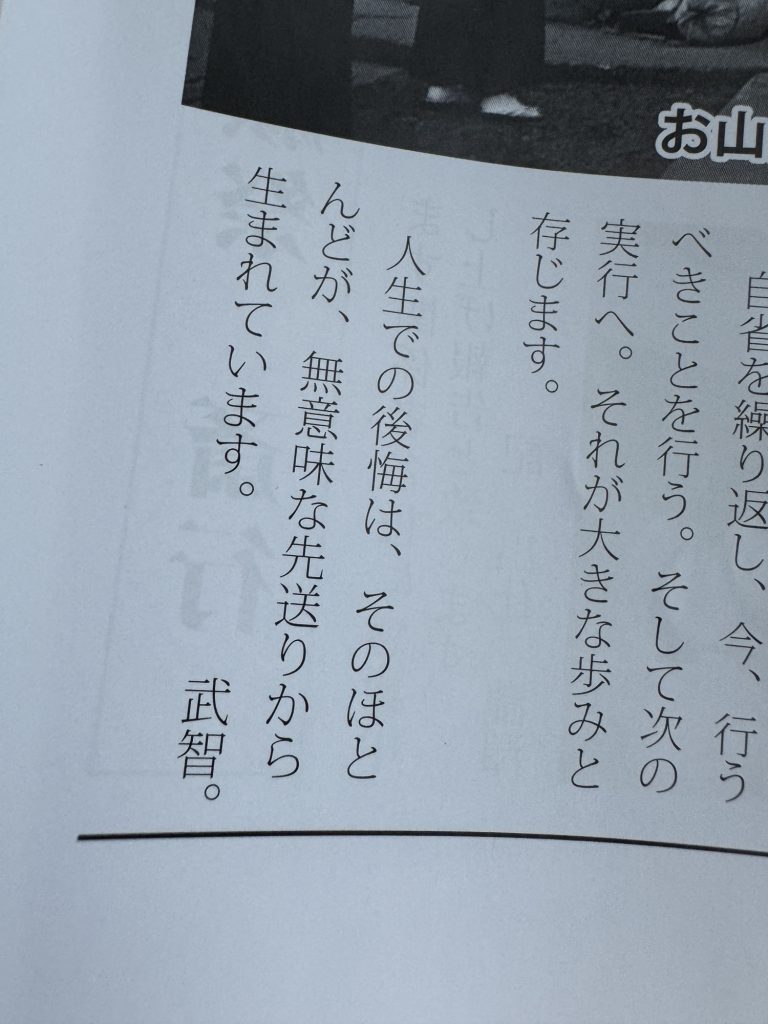 お山
自省を繰り返し、今、行う
べきことを行う。そして次の
実行へ。それが大きな歩みと
存じます。
人生での後悔は、そのほと
んどが、無意味な先送りから
生まれています。
武智。